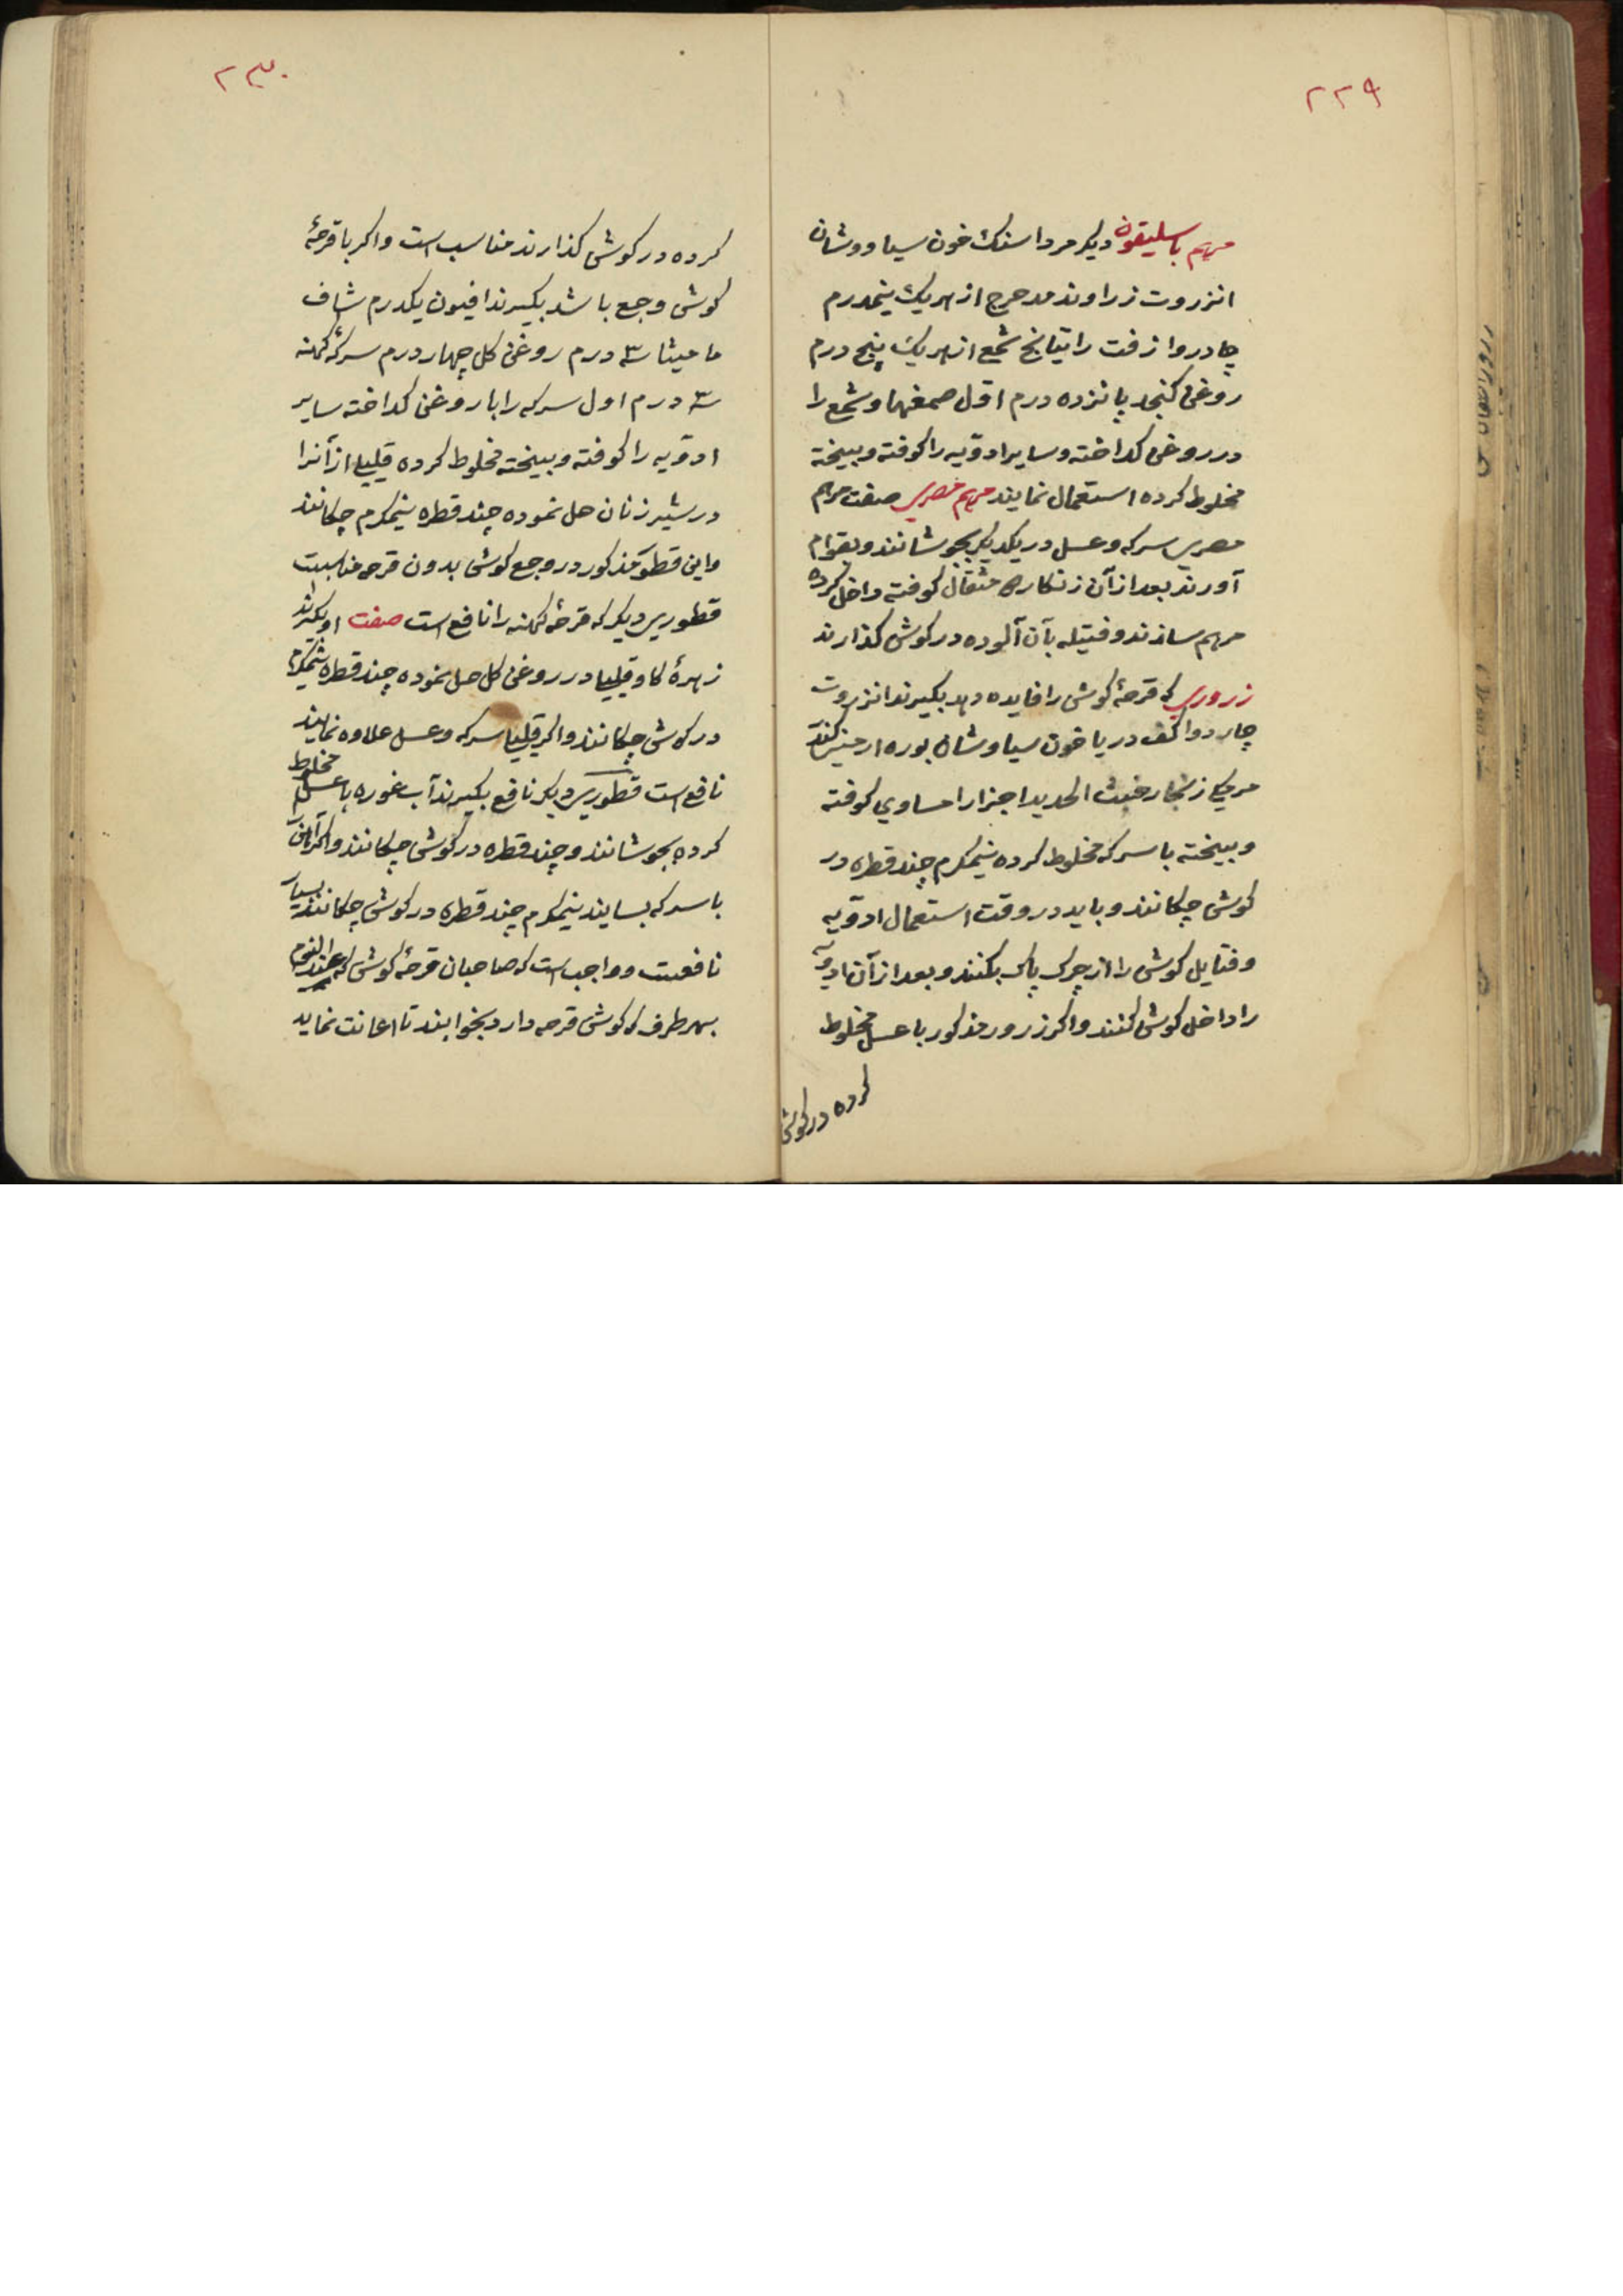 ۲۲۹
مرهم باسلیقون دیکر مرداسنک خون سیاووشان
انزروت زراوند مدحرج از هریک نیمدرم
جادروا زفت راتیانج شمع از هریک پنج درم
روغن کنجد پانزده درم اول صمغها و شمع را
در روغن کداخته و سایر ادویه را کوفته و بیخته
مخلوط کرده استعمال نمایند مرهم مصری صفت مرهم
مصری سرکه و عسل در یکدیکر بجوشانند و بقوام
آورند بعد از آن زنکار مثقال کوفته داخل کرده
مرهم سازند و فتیله بآن آلوده در کوش کذارند
زروری که قرحهٔ کوش را فایده دهد بکیرند انزروت
کف دریا خون سیاوشان بوره ارمنی
مرمکی زنجار خبث الحدید اجزا را مساوی کوفته
و بیخته با سرکه مخلوط کرده نیمکرم چند قطره در
کوش چکانند و باید در وقت استعمال ادویه
و فتایل کوش را از چرک پاک بکنند و بعد از آن ادویه
را داخل کوش کنند و اکر زرور مذکور با عسل مخلوط
کرده در کوش
۲۳۰
کرده در کوش کذارند مناسب است و اکر با قرحهٔ
کوش وجع باشد بکیرند افیون یکدرم شاف
مامیثا ۳ درم روغن کل چهار درم سرکهٔ کهنه
۳ درم اول سرکه را با روغن کداخته سایر
ادویه را کوفته و بیخته مخلوط کرده قلیلی از آنرا
در شیر زنان حل نموده چند قطره نیمکرم چکانند
و این قطور مذکور در وجع کوش بدون قرحه مناسبت
قطوری دیکر که قرحهٔ کهنه را نافع است صفت او بکیرند
زهرهٔ کاو قلیلیا در روغن کل حل نموده چند قطره نیمکرم
در کوش چکانند و اکر قلیلیا سرکه و عسل علاوه نمایند
نافع است قطوری دیکر نافع بکیرند آب غوره با عسل مخلوط
کرده بجوشانند و چند قطره در کوش چکانند و اکر آهن
با سرکه بسایند نیمکرم چند قطره در کوش چکانند بسیار
نافعست و واجب است که صاحبان قرحهٔ کوش که عند النوم
بهر طرف که کوش قرحه دارد بخوابند تا اعانت نماید